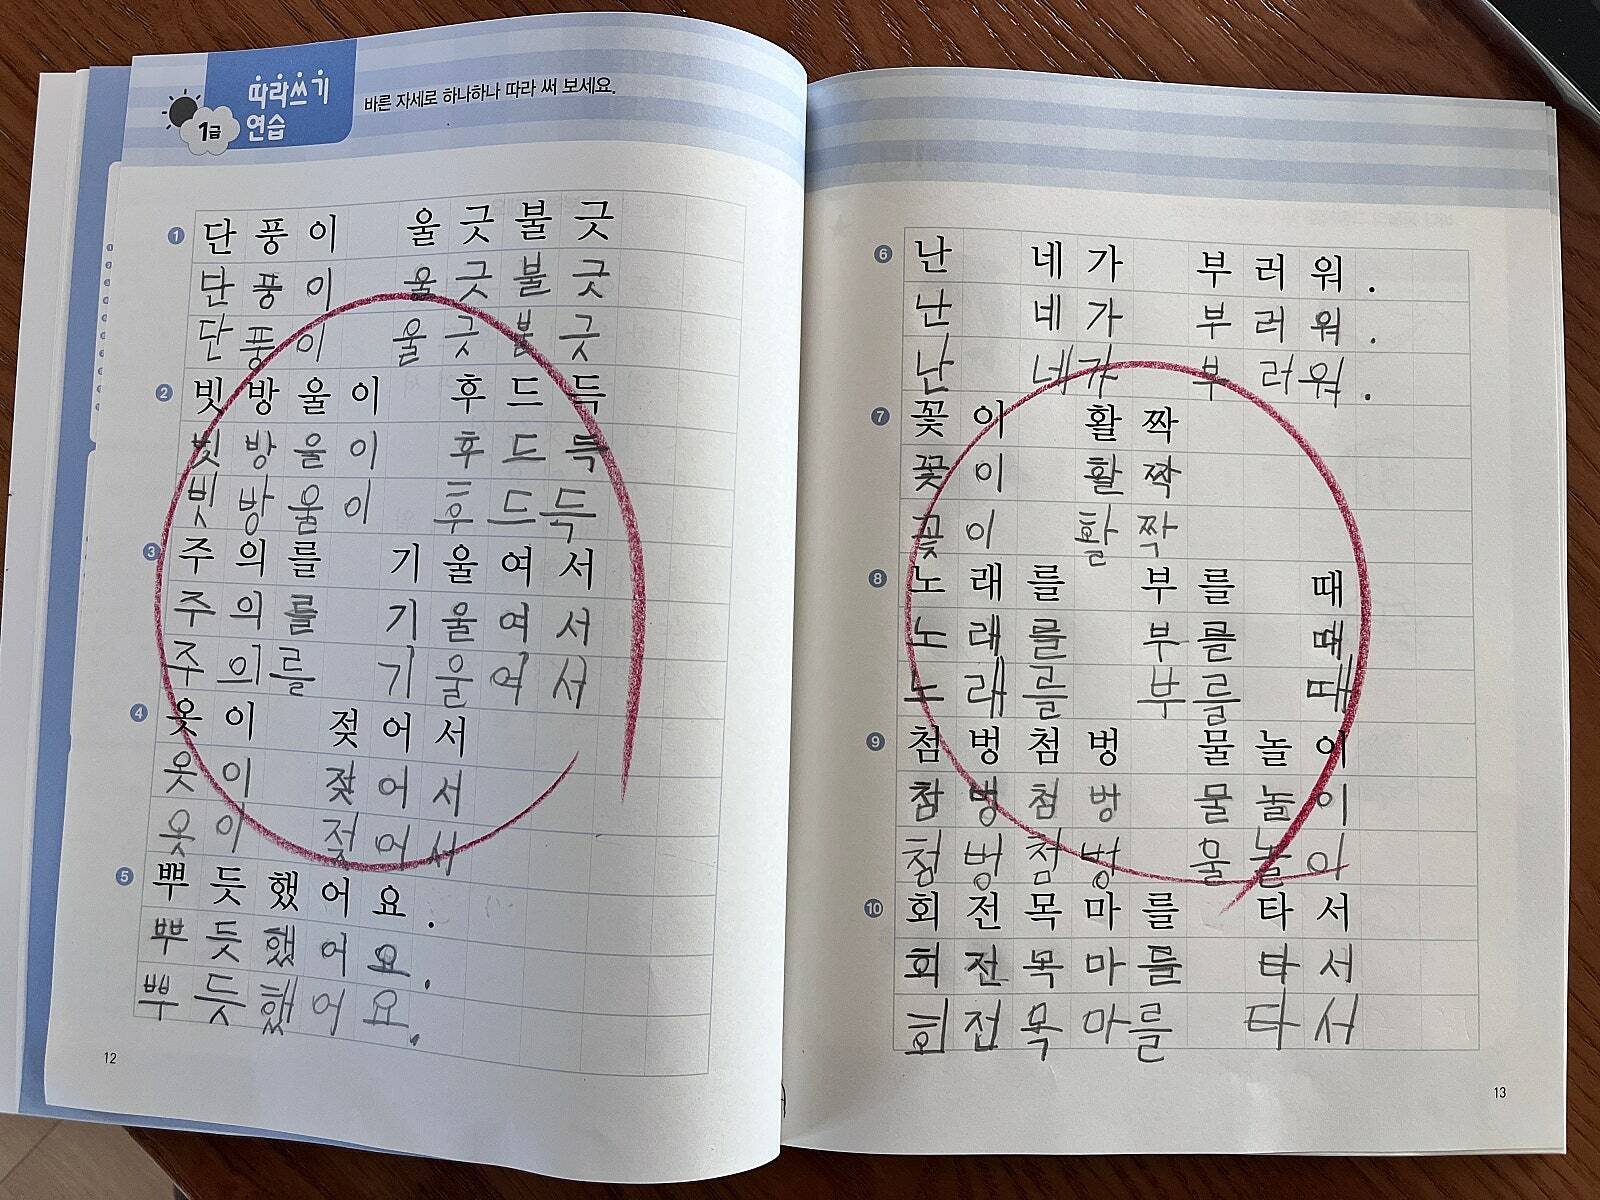 따라쓰기
연습
1급
바른 자세로 하나하나 따라 써 보세요.
1 단풍이 울긋불긋
단풍이 울긋불긋
단풍이 울긋불긋
2 빗방울이 후드득
빗방울이 후드득
빗방울이 후드득
3 주의를 기울여서
주의를 기울여서
주의를 기울여서
4 옷이 젖어서
옷이 젖어서
옷이 젖어서
5 뿌듯했어요.
뿌듯했어요.
뿌듯했어요.
12
6 난 네가 부러워.
난 네가 부러워.
난 네가 부러워.
7 꽃이 활짝
꽃이 활짝
꽃이 활짝
8 노래를 부를 때
노래를 부를 때
노래를 부를 때
9 첨벙첨벙 물놀이
첨벙첨벙 물놀이
첨벙첨벙 물놀이
10 회전목마를 타서
회전목마를 타서
회전목마를 타서
13